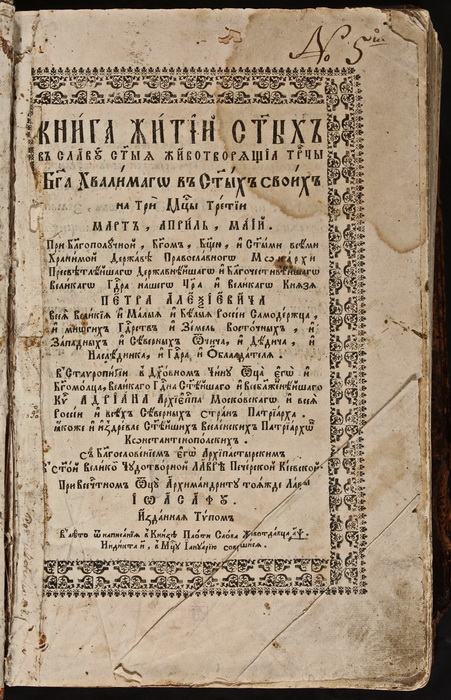 № 5
КНИ́ГА ЖИТІ́Й СТ҃ЫХЪ
В СЛА́ВУ СТ҃Ы́Ѧ ЖИВОТВОРѦ́ЩІѦ ТР҃ЦЫ
БГ҃А ХВАЛИ́МАГѠ ВЪ СТ҃Ы́ХЪ СВОИ́ХЪ
на Три Мц҃ы Тре́тїи
МА́РТЪ, АПРІ́ЛЬ, МА́ІЙ.
При Благополу́чной, Бг҃омъ, и҆ Ст҃ы́ми все́ми
Храни́мой Держа́вѣ Правосла́внагѡ Мона́рхи
Пресвѣтлѣ́йшагѡ Держа́внѣйшагѡ и҆ Благочести́вѣйшагѡ
Вели́кагѡ Гд҃ра на́шегѡ Цр҃ѧ и҆ Вели́кагѡ Кнѧ́зѧ
ПЕТРА̀ АЛЕѮІ́ЕВИЧА
всеѧ̀ Вели́кїѧ и҆ Ма́лыѧ и҆ Бѣ́лыѧ Рѡссі́и Самоде́ржца,
и҆ мно́гихъ Гд҃рствъ и҆ Земе́ль Восто́чныхъ, и҆
За́падныхъ и҆ Сѣ́верныхъ Ѿчича, и҆ Дѣ́дича, и҆
Наслѣ́дника, и҆ Гд҃рѧ, и҆ Облада́телѧ.
В Ставропигі́и и҆ Дх҃о́вномъ Чи́ну Ѻ҆ц҃а̀ є҆гѡ̀ и҆
Бг҃омо́лца, Вели́кагѡ Гд҃на Ст҃ѣ́йшагѡ и҆ Всебл҃же́ннѣйшагѡ
Кѵ҃ръ АДРІА́НА Архїепⷭ҇кпа Моско́вскагѡ и҆ всеѧ̀
Рѡссі́и и҆ всѣ́хъ Сѣ́верныхъ Стра́нъ Патрїа́рха.
ꙗ҆́коже и҆ и҆здре́вле Ст҃ѣ́йшихъ Вселе́нскихъ Патрїа́рхѡвъ
Кѡнстантїнопо́лскихъ.
Съ Бл҃гослове́нїемъ є҆гѡ̀ Архїпа́стырскимъ
в Ст҃о́й Вели́кой Чудотво́рной ЛА́ВРѢ Пече́рской Кі́евской
При Всече́стномъ Ѻ҆ц҃ꙋ̀ Архїмандри́тꙋ тоѧ́жде Ла́вры
ІѠАСА́ФꙊ.
И҆́зданнаѧ Ти́помъ
В лѣ́то ѿ написа́нїѧ в Кни́зѣ Пло́ти Сло́ва Живода́вца, ҂аѱ҃.
І҆нди́кта и҃, в Мц҃ꙋ І҆аннꙋа́рїю соверши́сѧ.